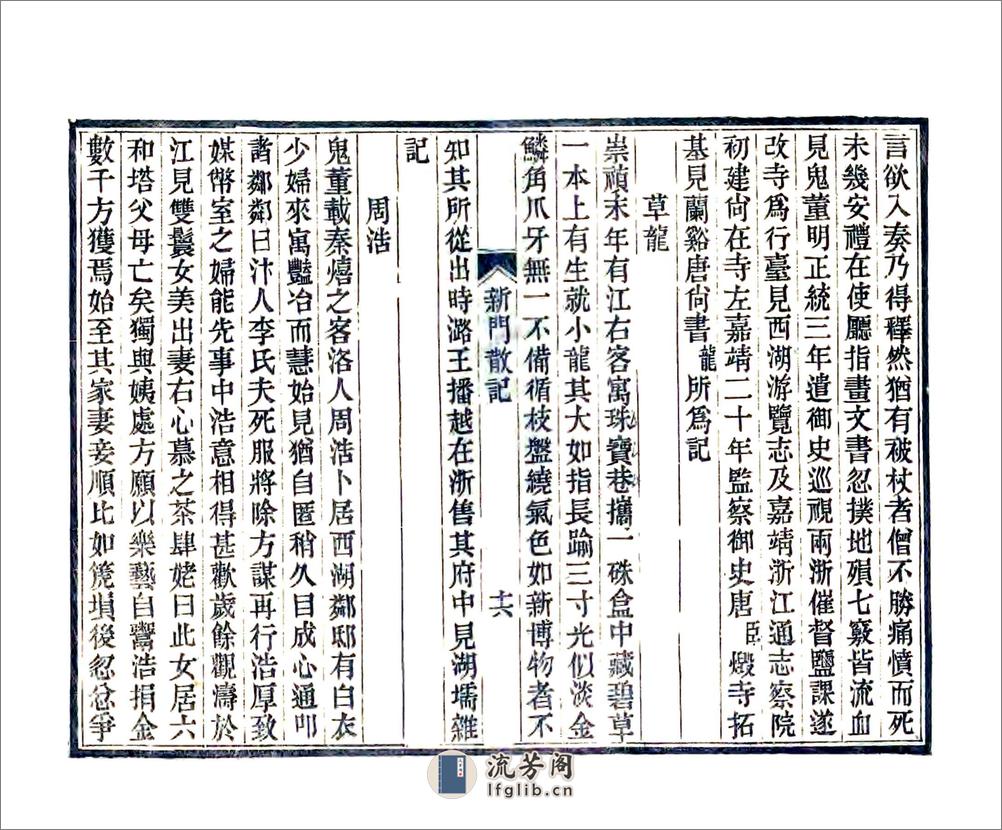 言欲入奏乃得釋然猶有被杖者僧不勝痛憤而死
未幾安禮在使廳指畫文書忽撲地殞七竅皆流血
見鬼董明正統三年遣御史巡視兩浙催督鹽課遂
改寺爲行臺見西湖游覽志及嘉靖浙江通志察院
初建尙在寺左嘉靖二十年監察御史唐臣燬寺拓
基見蘭谿唐尙書龍所爲記
草龍
崇禎末年有江右客寓珠寶巷攜一硃盒中藏碧草
一本上有生就小龍其大如指長踰三寸光似淡金
鱗角爪牙無一不備循枝盤繞氣色如新博物者不
新門散記
十六
知其所從出時潞王播越在浙售其府中見湖壖雜
記
周浩
鬼董載秦熺之客洛人周浩卜居西湖鄰邸有白衣
少婦來寓豔冶而慧始見猶自匿稍久目成心通叩
諸鄰鄰曰汴人李氏夫死服將除方謀再行浩厚致
媒幣室之婦能先事中浩意相得甚歡歲餘觀濤於
江見雙鬟女美出妻右心慕之茶肆姥曰此女居六
和塔父母亡矣獨與姨處方願以樂藝自鬻浩捐金
數千方獲焉始至其家妻妾順比如箎塤後忽忿爭
流芳阁
lfglib.cn